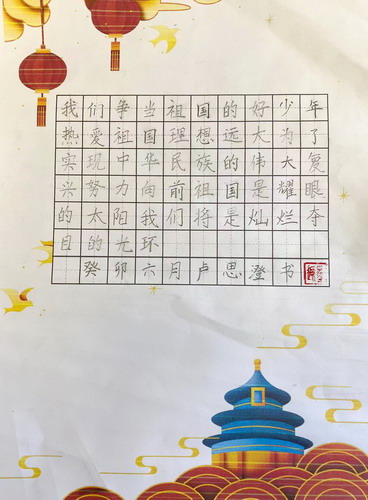 我们争当祖国的好少年
热爱祖国理想远大为了
实现中华民族的伟大复
兴努力向前祖国是耀眼
的太阳我们将是灿烂夺
目的光环
癸卯六月卢思澄书